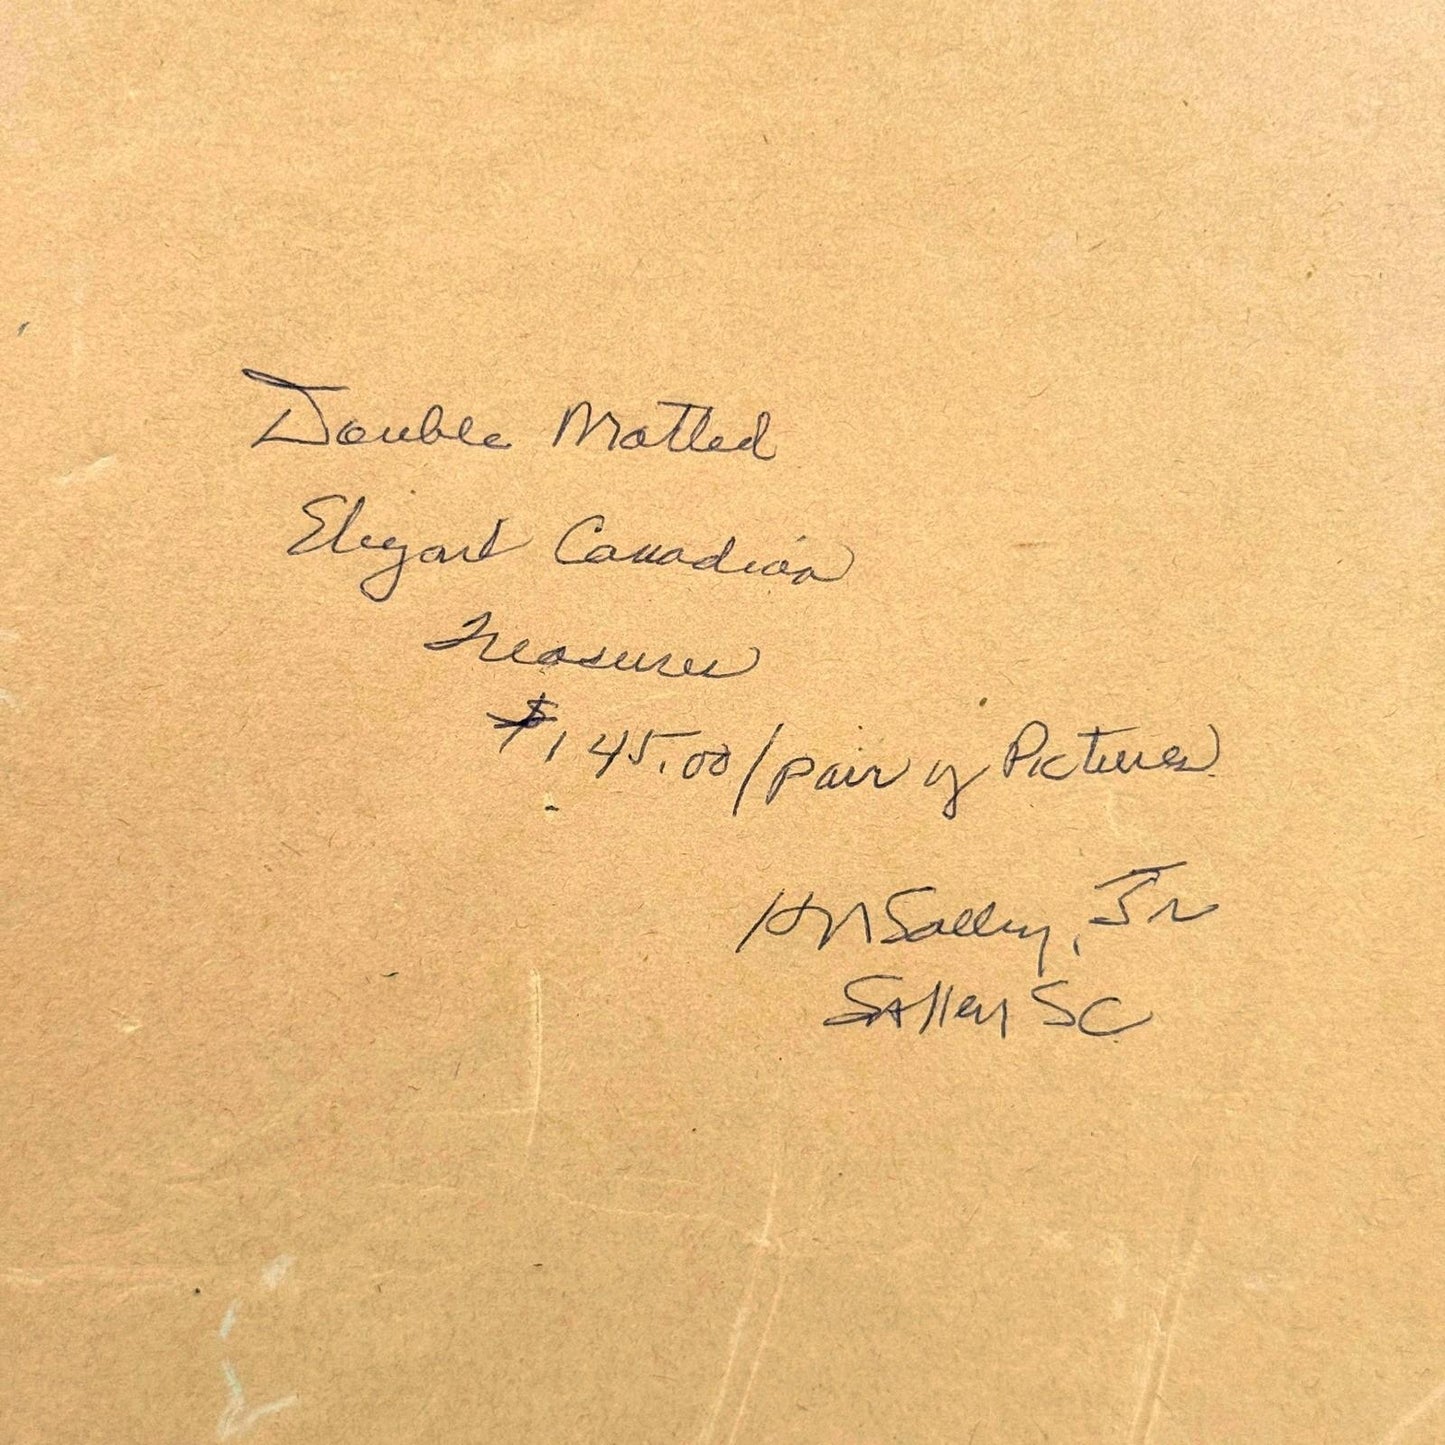 Double Matted
Elegant Canadian
Treasures
$145.00/pair of Pictures
HM Salley, Jr
Salley SC